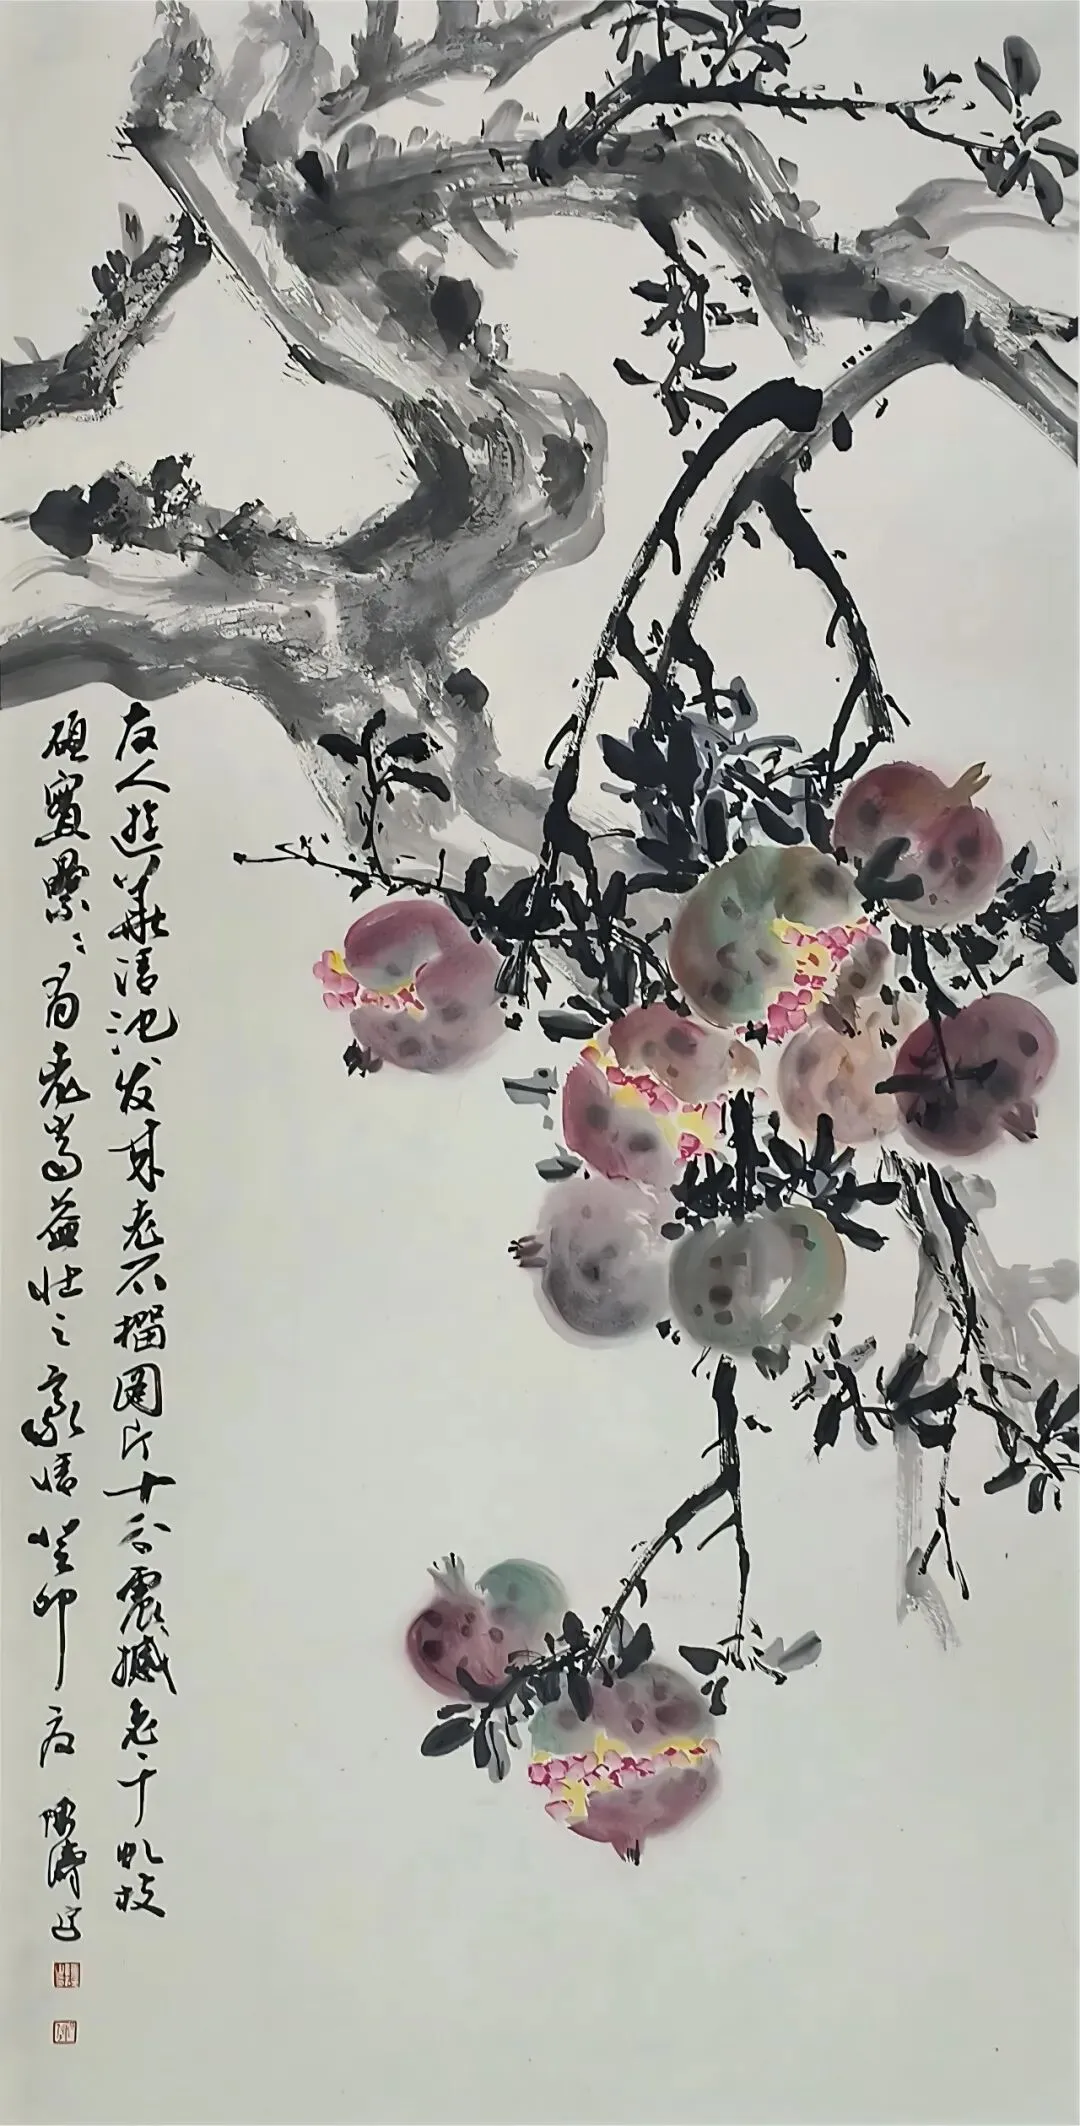 友人游华清池发来老石榴图片十分震撼老干虬枝
硕实累累有老当益壮之豪情癸卯夏 陈涛写